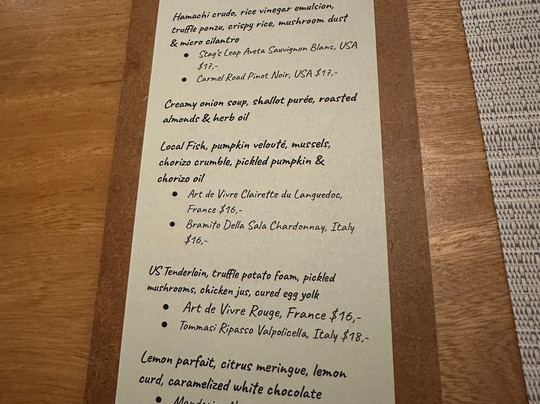 Hamachi crudo, rice vinegar emulsion,
truffle ponzu, crispy rice, mushroom dust
& micro cilantro
• Stag's Leap Aveta Sauvignon Blanc, USA
$17,-
• Carmel Road Pinot Noir, USA $17,-
Creamy onion soup, shallot purée, roasted
almonds & herb oil
Local Fish, pumpkin velouté, mussels,
chorizo crumble, pickled pumpkin &
chorizo oil
• Art de Vivre Clairette du Languedoc,
France $16,-
• Bramito Della Sala Chardonnay, Italy
$16,-
US Tenderloin, truffle potato foam, pickled
mushrooms, chicken jus, cured egg yolk
• Art de Vivre Rouge, France $16,-
• Tommasi Ripasco Valpolicella, Italy $18,-
Lemon parfait, citrus meringue, lemon
curd, caramelized white chocolate